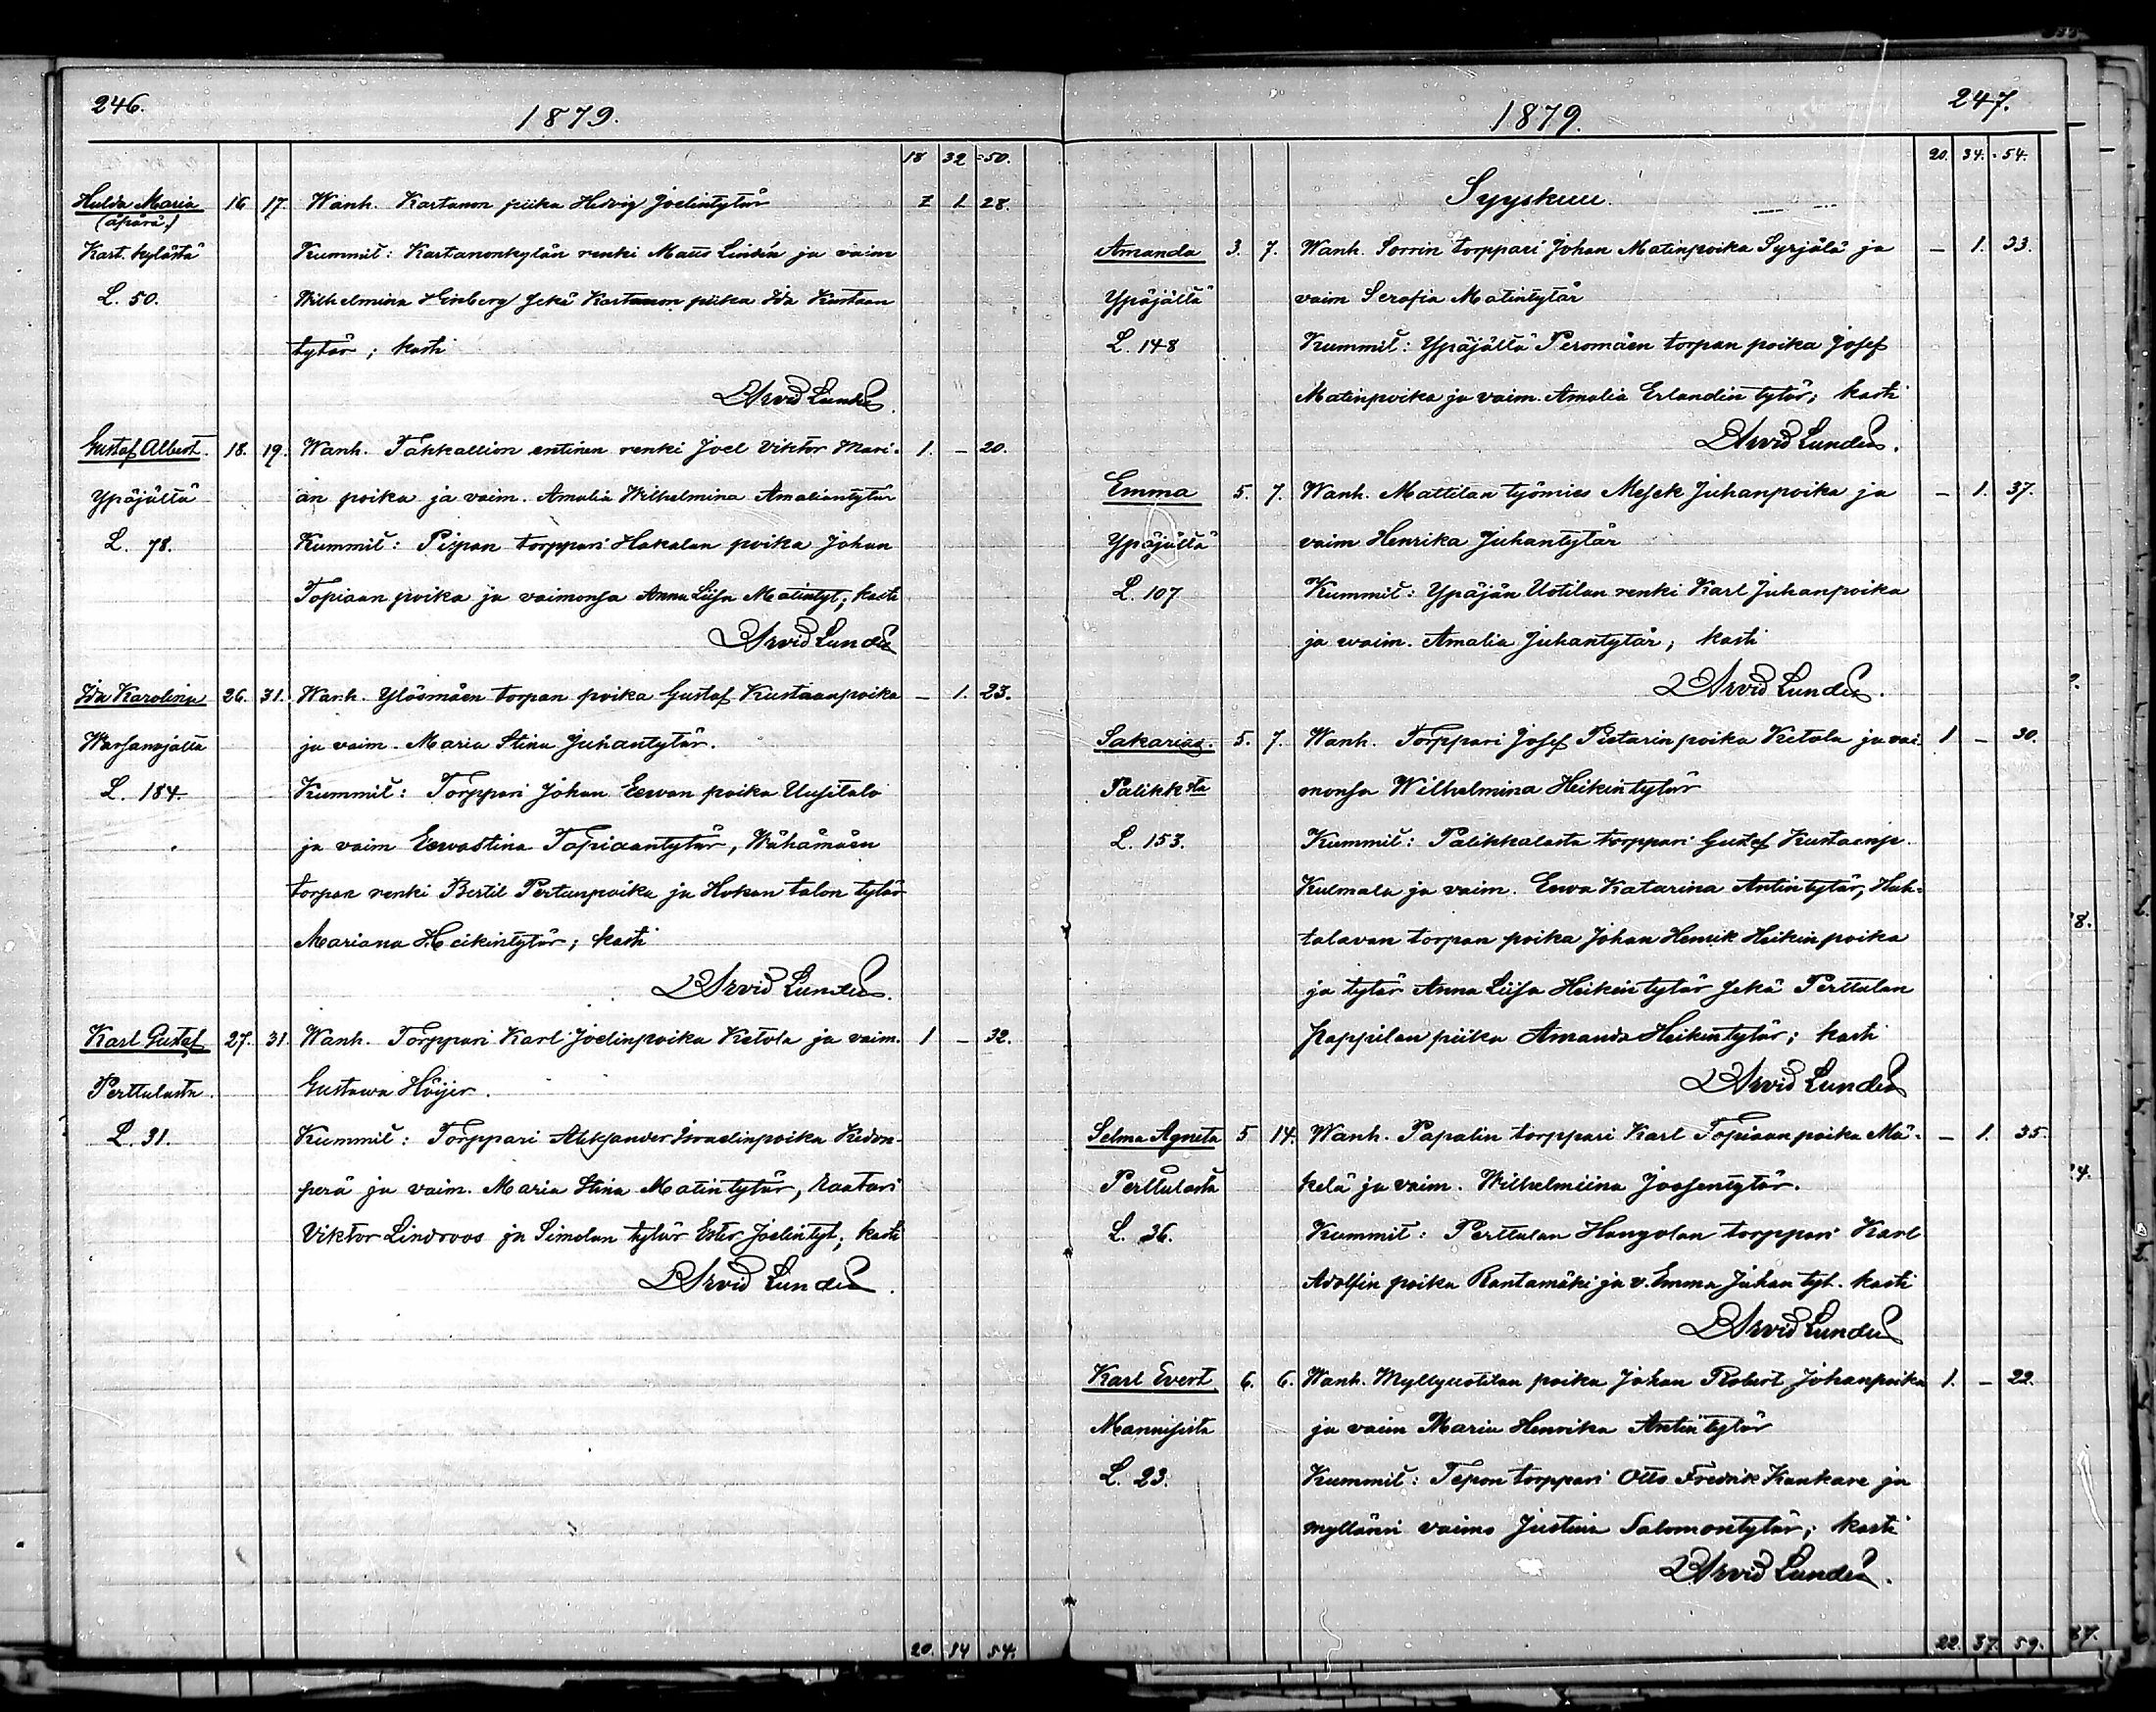 246.
1879.
18 32 =50.
Hulda Maria 16 17. Wanh. Kartanon piika Hedvig Joelintytär 1 28.
(äpärä)
Kart. kylästä Kummit: Kartanonkylän renki Maus Lindén ja vaim
L. 50. Wilhelmina Hinberg sekä Kartanon piika Ida Kustaan
tytär; kasti
Arvid Lundén.
Gustaf Albert. 18. 19. Wanh. Tähkallion entinen renki Joel Viktor Mari- 1. – 20.
Ypäjältä an poika ja vaim. Amalia Wilhelmina Amaliantytär
L. 78. Kummit: Pispan torppari Hakalan poika Johan
Topiaan poika ja vaimonsa Anna Liisa Matintyt; kasti
Arvid Lundén
Ida Karolina 26. 31. Wanh. Ylösmäen torpan poika Gustaf Kustaanpoika – 1. 23.
Warsanojalta ja vaim. Maria Stina Juhantytär.
L. 184. Kummit: Torppari Johan Eevan poika Uusitalo
ja vaim Eewastina Topiaantytär, Wähämäen
torpan renki Bertil Pertunpoika ja Hokan talon tytär
Mariana Heikintytär; kasti
Arvid Lundén.
Karl Gustaf 27. 31. Wanh. Torppari Karl Joelinpoika Ketola ja vaim. 1 – 32.
Perttulasta. Gustava Höijer.
L. 31. Kummit: Torppari Aleksander Israelinpoika
perä ja vaim. Maria Stina Matintytär, Raatari
Viktor Lindroos ja Simolan tytär Ester Joelintyt; kasti
Arvid Lundén.
20. 34 54.
247.
1879.
20. 34. =54.
Syyskuu.
Amanda 3. 7. Wanh. Sorrin torppari Johan Matinpoika Syrjälä ja – 1. 33.
Ypäjältä vaim Serafia Matintytär
L. 148 Kummit: Ypäjältä Peromäen torpan poika Josef
Matinpoika ja vaim. Amalia Erlandin tytär; kasti
Arvid Lundén.
Emma 5. 7. Wanh. Mattilan työmies Mesek Juhanpoika ja – 1. 37.
Ypäjältä vaim Henrika Juhantytär
L. 107 Kummit: Ypäjän Uotilan renki Karl Juhanpoika
ja vaim. Amalia Juhantytär; kasti
Arvid Lundén.
Sakarias. 5. 7. Wanh. Torppari Josef Pietarin poika Ketola ja vai- 1 – 30.
Palikksta monsa Wilhelmina Heikintytär
L. 153. Kummit: Palikkalasta torppari Gustaf Kustaanp.
Kulmala ja vaim. Eewa Katarina Antintytär, Huh-
talavan torpan poika Johan Henrik Heikin poika
ja tytär Anna Liisa Heikin tytär sekä Perttulan
Pappilan piika Amanda Heikintytär; kasti
Arvid Lundén
Selma Agneta 5 14. Wanh. Papalin torppari Karl Topiaan poika Mä- – 1. 35.
Perttulasta kelä ja vaim. Wilhelmiina Joosentytär.
L. 36. Kummit: Perttulan Hangolan torppari Karl
Adolfin poika Rantamäki ja v. Emma Juhan tyt. kasti
Arvid Lundén
Karl Evert 6. 6. Wanh. Myllyuotilan poika Johan Robert Johanpoika 1. – 22.
Mannisista ja vaim Maria Henrika Antin tytär
L. 23. Kummit: Tepon torppari Otto Fredrik Kankare ja
myllärin vaimo Justina Salomontytär; kasti
Arvid Lundén.
22. 37. 59.